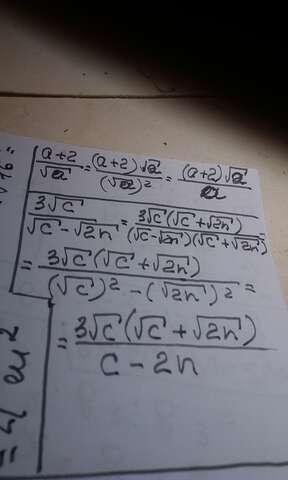 √16 =
(a+2)/√a = (a+2)√a/(√a)² = (a+2)√a/a
3√c/(√c-√2n) = 3√c(√c+√2n)/((√c-√2n)(√c+√2n)) =
= 3√c(√c+√2n)/((√c)²-(√2n)²) =
= 3√c(√c+√2n)/(c-2n)